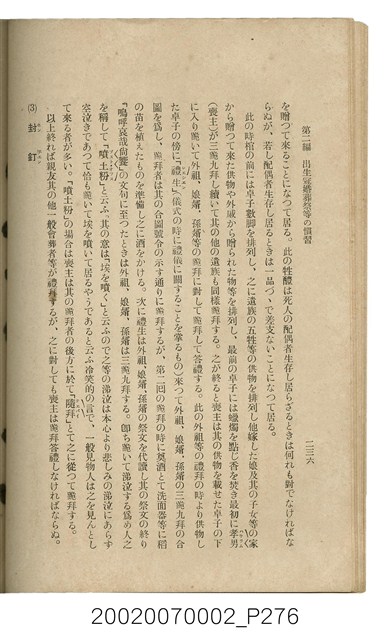 第二編 出生冠婚葬祭等の慣習
二三六
を贈つて來ることになつて居る。此の牲醴は死人の配偶者生存し居らざるときは何れも對でなければな
らぬが、若し配偶者生存し居るときは一品づゝで差支ないことになつて居る。
此の時棺前の前には卓子數脚を排列し、之に遺族の五牲等の供物を排列し他嫁した娘及其の子女等の家
から贈つて來た供物や外戚から贈られた物等を排列し、最前の卓子には蠟燭を點し香を焚き最初に孝男
(喪主)が三跪九拜し續いて其の他の遺族も同樣跪拜する。之が終ると喪主は其の供物を載せた卓子の下
に入り跪いて外祖、娘婿、孫婿等の跪拜に對して跪拜して答禮する。此の外祖等の禮拜の時より供物し
た卓子の傍に「禮生」(儀式の時に禮儀に關することを掌るもの)來つて外祖、娘婿、孫婿の三跪九拜の合
圖を爲し、跪拜者は其の合圖號令の示す通りに跪拜するが、第二回の跪拜の時に奠酒とて洗面器等に稻
の苗を植えたものを準備し之に酒をかける。次に禮生は外祖、娘婿、孫婿の祭文を代讀し其の祭文の終り
「嗚呼哀哉尙饗」の文句に至つたときは外祖、娘婿、孫婿は三跪九拜する。卽ち跪いて涕泣する爲め人之
を稱して「噴土粉」と云ふ、其の意は、「埃を噴く」と云ふので之等の涕泣は本心より悲しみの涕泣にあらず
空泣きであつて恰も跪いて埃を噴いて居るやうであると云ふ冷笑的の言で、一般見物人は之を見んとし
て來る者が多い。「噴土粉」の場合は喪主は其の跪拜者の後方に於て「隨拜」とて之に從つて跪拜する。
以上終れば親友其の他一般會葬者等が禮拜するが、之に對しても喪主は跪拜答禮しなければならぬ。
(3) 封釘
20020070002_P276